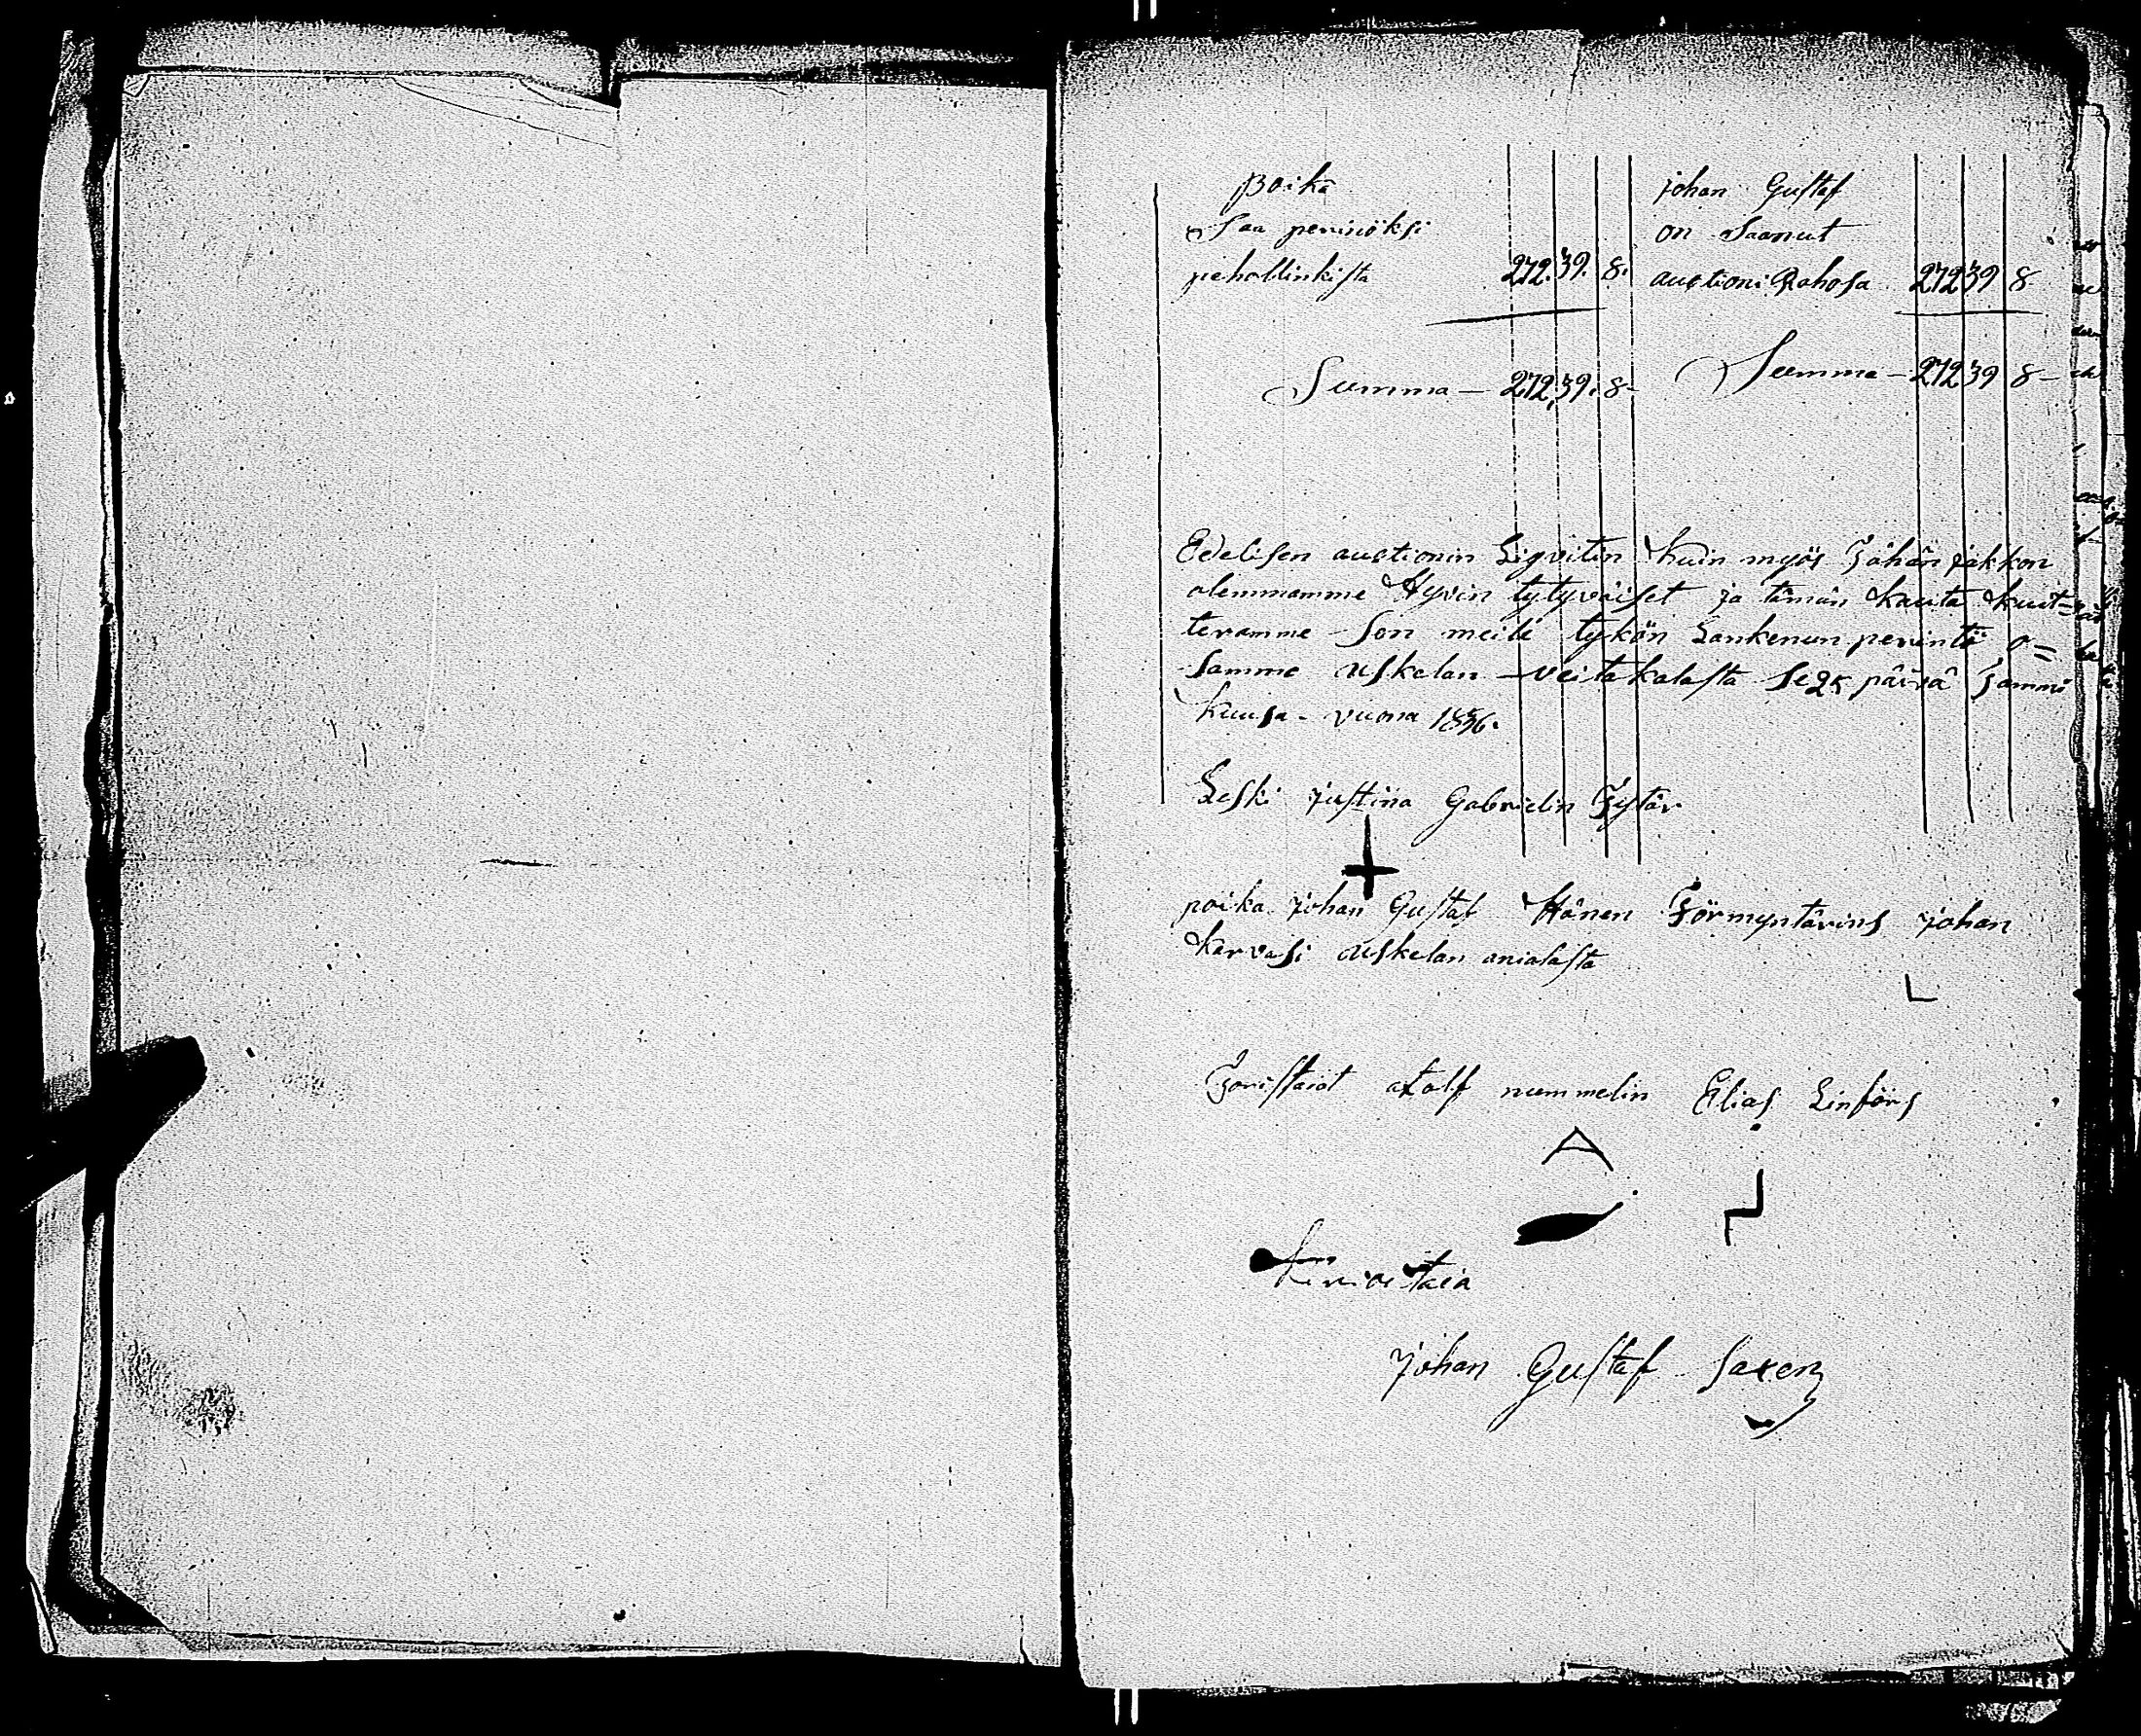 Poika
Saa perinöksi
pehollinkista 272. 39. 8.
Summa — 272, 39. 8 -
johan Gustaf
on Saanut
auctioni Rahosa 272 39 8
Summa — 272 39 8 —
Edelisen auctionin Liqvitin kuin myös Tähän jakkon
olemmamme Hyvin tytyväiset ja tämän kautta kuit=
teramme Sen meile tykön Lankenun perintö o=
samme uskelan veitakalasta Se 25 päivä Tammi
kuusa - vuona 1856.
Leski justiina Gabrielin Tytär
poika johan Gustaf Hänen Förmyntärins johan
karvasi uskelan anialasta
Toristaiat atolf nummelin Elias Linförs
A
Kirioittaia
johan Gustaf Saxen